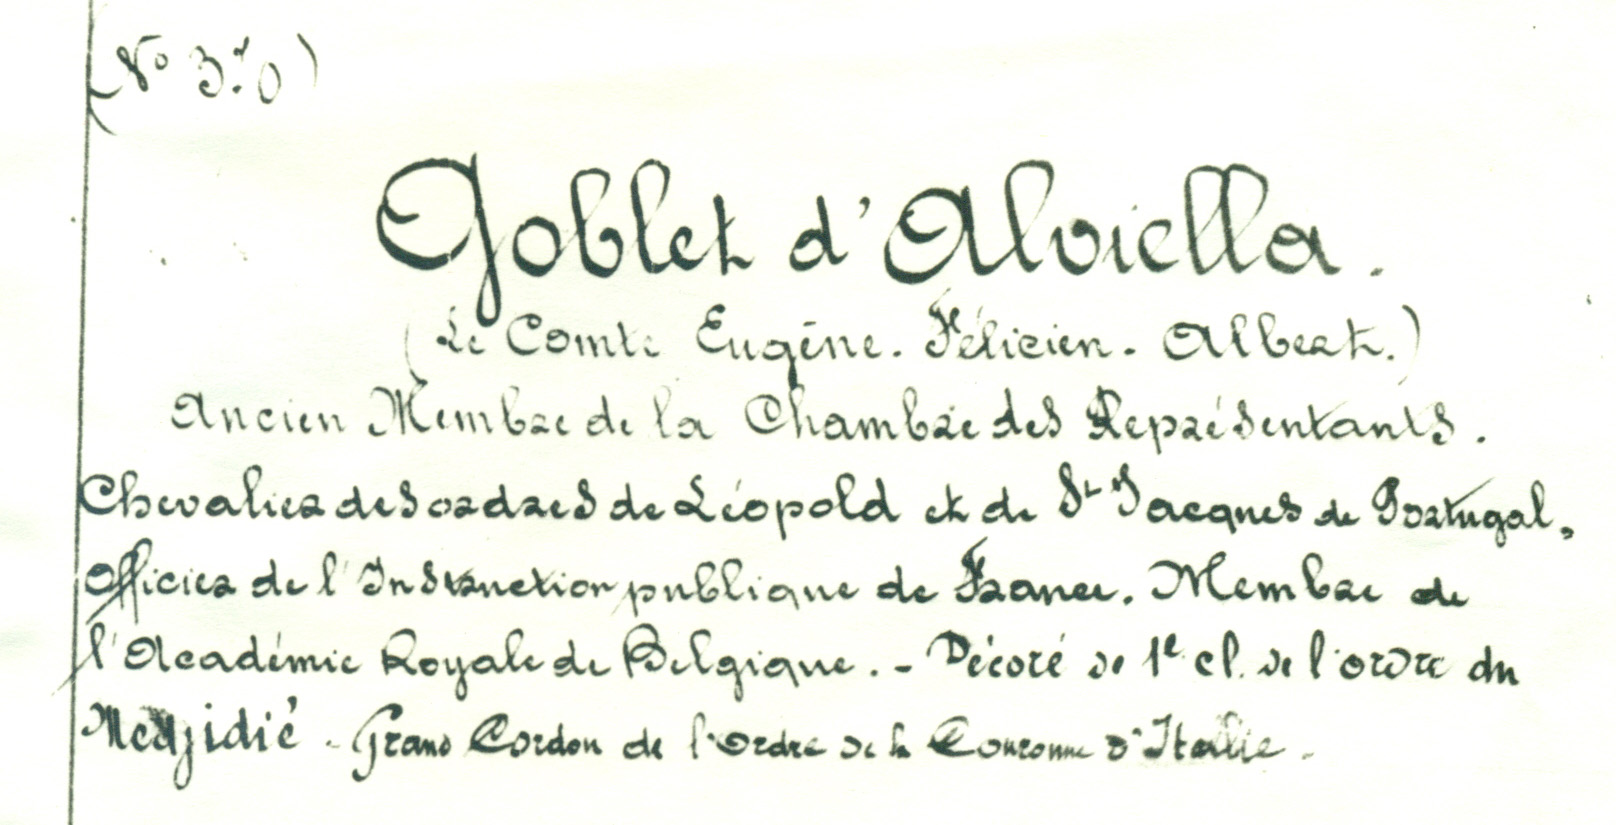 Goblet d'Alviella.
(Le Comte Eugène. Félicien. Albert.)
Ancien Membre de la Chambre des Représentants.
Chevalier des ordres de Léopold et de St Jacques de Portugal,
Officier de l'Instruction publique de France. Membre de
l'Académie Royale de Belgique. - Décoré de 1e cl. de l'ordre du
Medjidié - Grand Cordon de l'Ordre de la Couronne d'Italie.